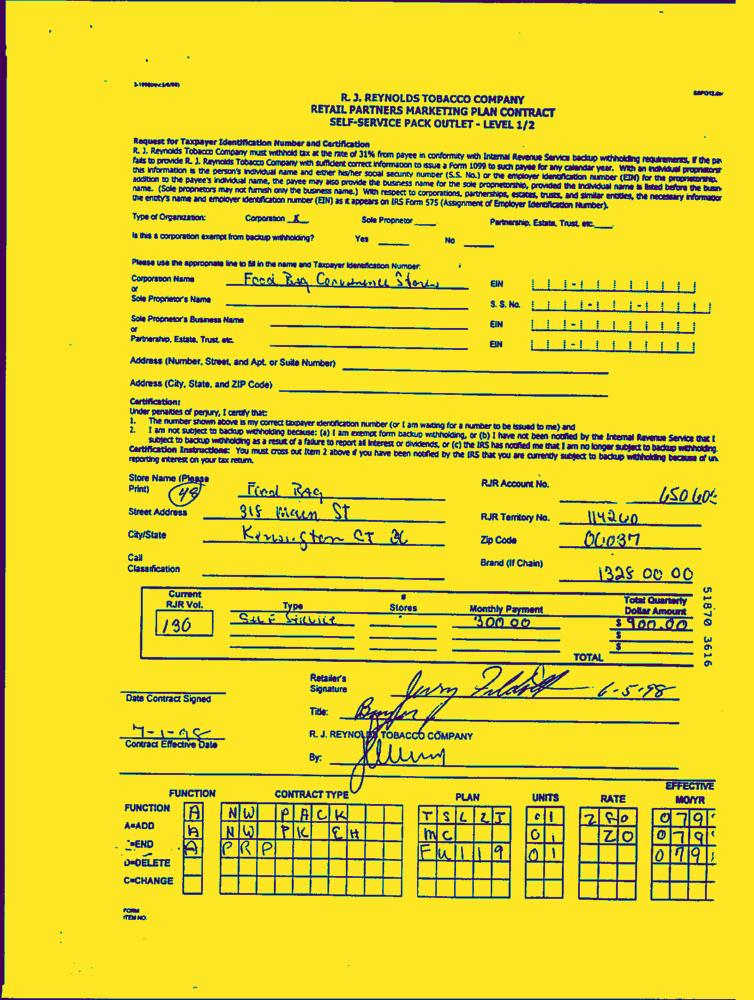 R. J. REYNOLDS TOBACCO COMPANY
RETAIL PARTNERS MARKETING PLAN CONTRACT
SELF-SERVICE PACK OUTLET - LEVEL 1/2
Request for Taxpayer Identification Number and Certification
R. J. Reynolds Tobacco Company must withhold tax at the rate of 31% from payee in conformity with Internal Revenue Service backup withholding requirements, if the
fails to provide R. J. Reynolds Tobacco Company with sufficient correct information to issue a Form 1099 to such payee for any calendar year. With an individual
this information is the person's individual name and either his/her social security number (S.S. No.) or the employer identification number (EIN) for the proprietorship.
addition to the payee's individual name, the payee may also provide the business name for the sole proprietorship, provided the individual name is listed before the
name. (Sole proprietors may not furnish only the business name.) With respect to corporations, partnerships, estates, trusts, and similar entities, the necessary
the entity's name and employer identification number (EIN) as it appears on IRS Form 575 (Assignment of Employer Identification Number).
Type of Organization: Corporation X Sole Proprietor Partnership, Estate, Trust, etc.
Is this a corporation exempt from backup withholding? Yes No
Please use the appropriate line to fill in the name and Taxpayer Identification Number:
Corporation Name Food Bag Convenience Stores EIN
or
Sole Proprietor's Name S. S. No.
Sole Proprietor's Business Name EIN
or
Partnership, Estate, Trust, etc. EIN
Address (Number, Street, and Apt. or Suite Number)
Address (City, State, and ZIP Code)
Certification:
Under penalties of perjury, I certify that:
1. The number shown above is my correct taxpayer identification number (or I am waiting for a number to be issued to me) and
2. I am not subject to backup withholding because: (a) I am exempt form backup withholding, or (b) I have not been notified by the Internal Revenue Service that I
subject to backup withholding as a result of a failure to report all interest or dividends, or (c) the IRS has notified me that I am no longer subject to backup withholding.
Certification Instructions: You must cross out Item 2 above if you have been notified by the IRS that you are currently subject to backup withholding because of
reporting interest on your tax return.
Store Name (Please
Print) 48 Food Bag RJR Account No.
Street Address 318 Main St RJR Territory No. 114260
City/State Kensington CT Zip Code 06037
Call
Classification Brand (If Chain) 1328 00 00
Current
RJR Vol. Type # Stores Monthly Payment Total Quarterly Dollar Amount
130 Self Service 300.00 $ 900.00
$
$
TOTAL
51870 3616
Retailer's
Signature 6-5-98
Date Contract Signed
Title:
7-1-98 R. J. REYNOLDS TOBACCO COMPANY
Contract Effective Date
By:
FUNCTION CONTRACT TYPE PLAN UNITS RATE EFFECTIVE MO/YR
FUNCTION A NW PACK TSL2J 01 280 079
A=ADD A NW PK EH MC 01 20 079
*=END A PRP FU119 01 079
D=DELETE
C=CHANGE
FORM
ITEM NO.